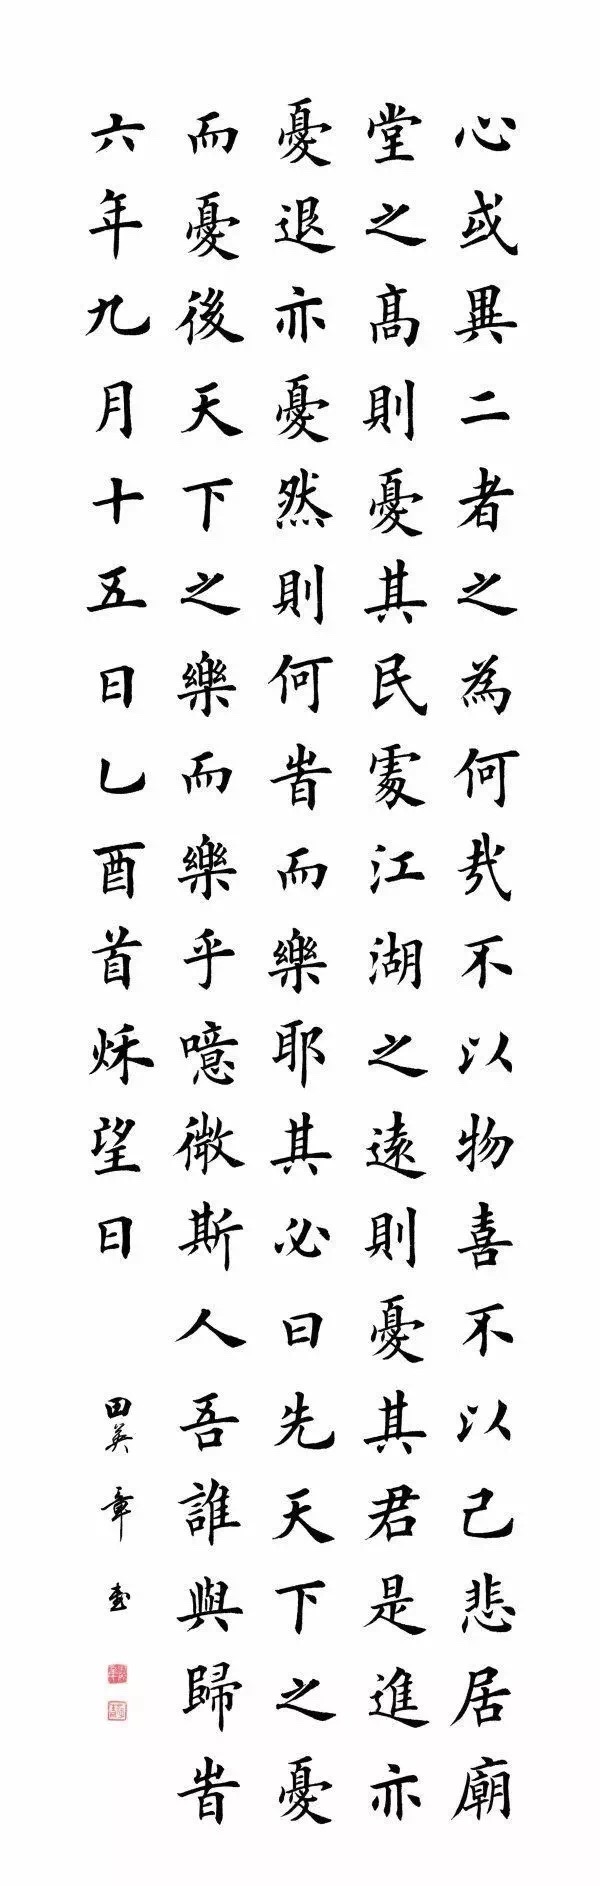 心或異二者之為何哉不以物喜不以己悲居廟
堂之髙則憂其民處江湖之遠則憂其君是進亦
憂退亦憂然則何旹而樂耶其必曰先天下之憂
而憂後天下之樂而樂乎噫微斯人吾誰與歸旹
六年九月十五日乙酉首秌望日
田英章書